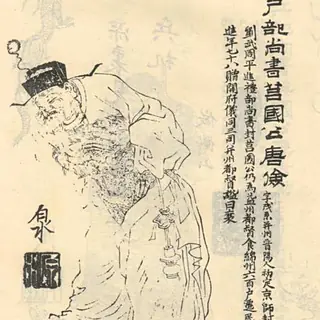 戶部尚書莒國公唐儉
字茂系并州晉陽人初定京師封
劉武周平進禮部尚書封莒國公仍爲益州都督食綿州六百戶
進年七十八贈開府儀同三司并州都督謚曰襄
泉